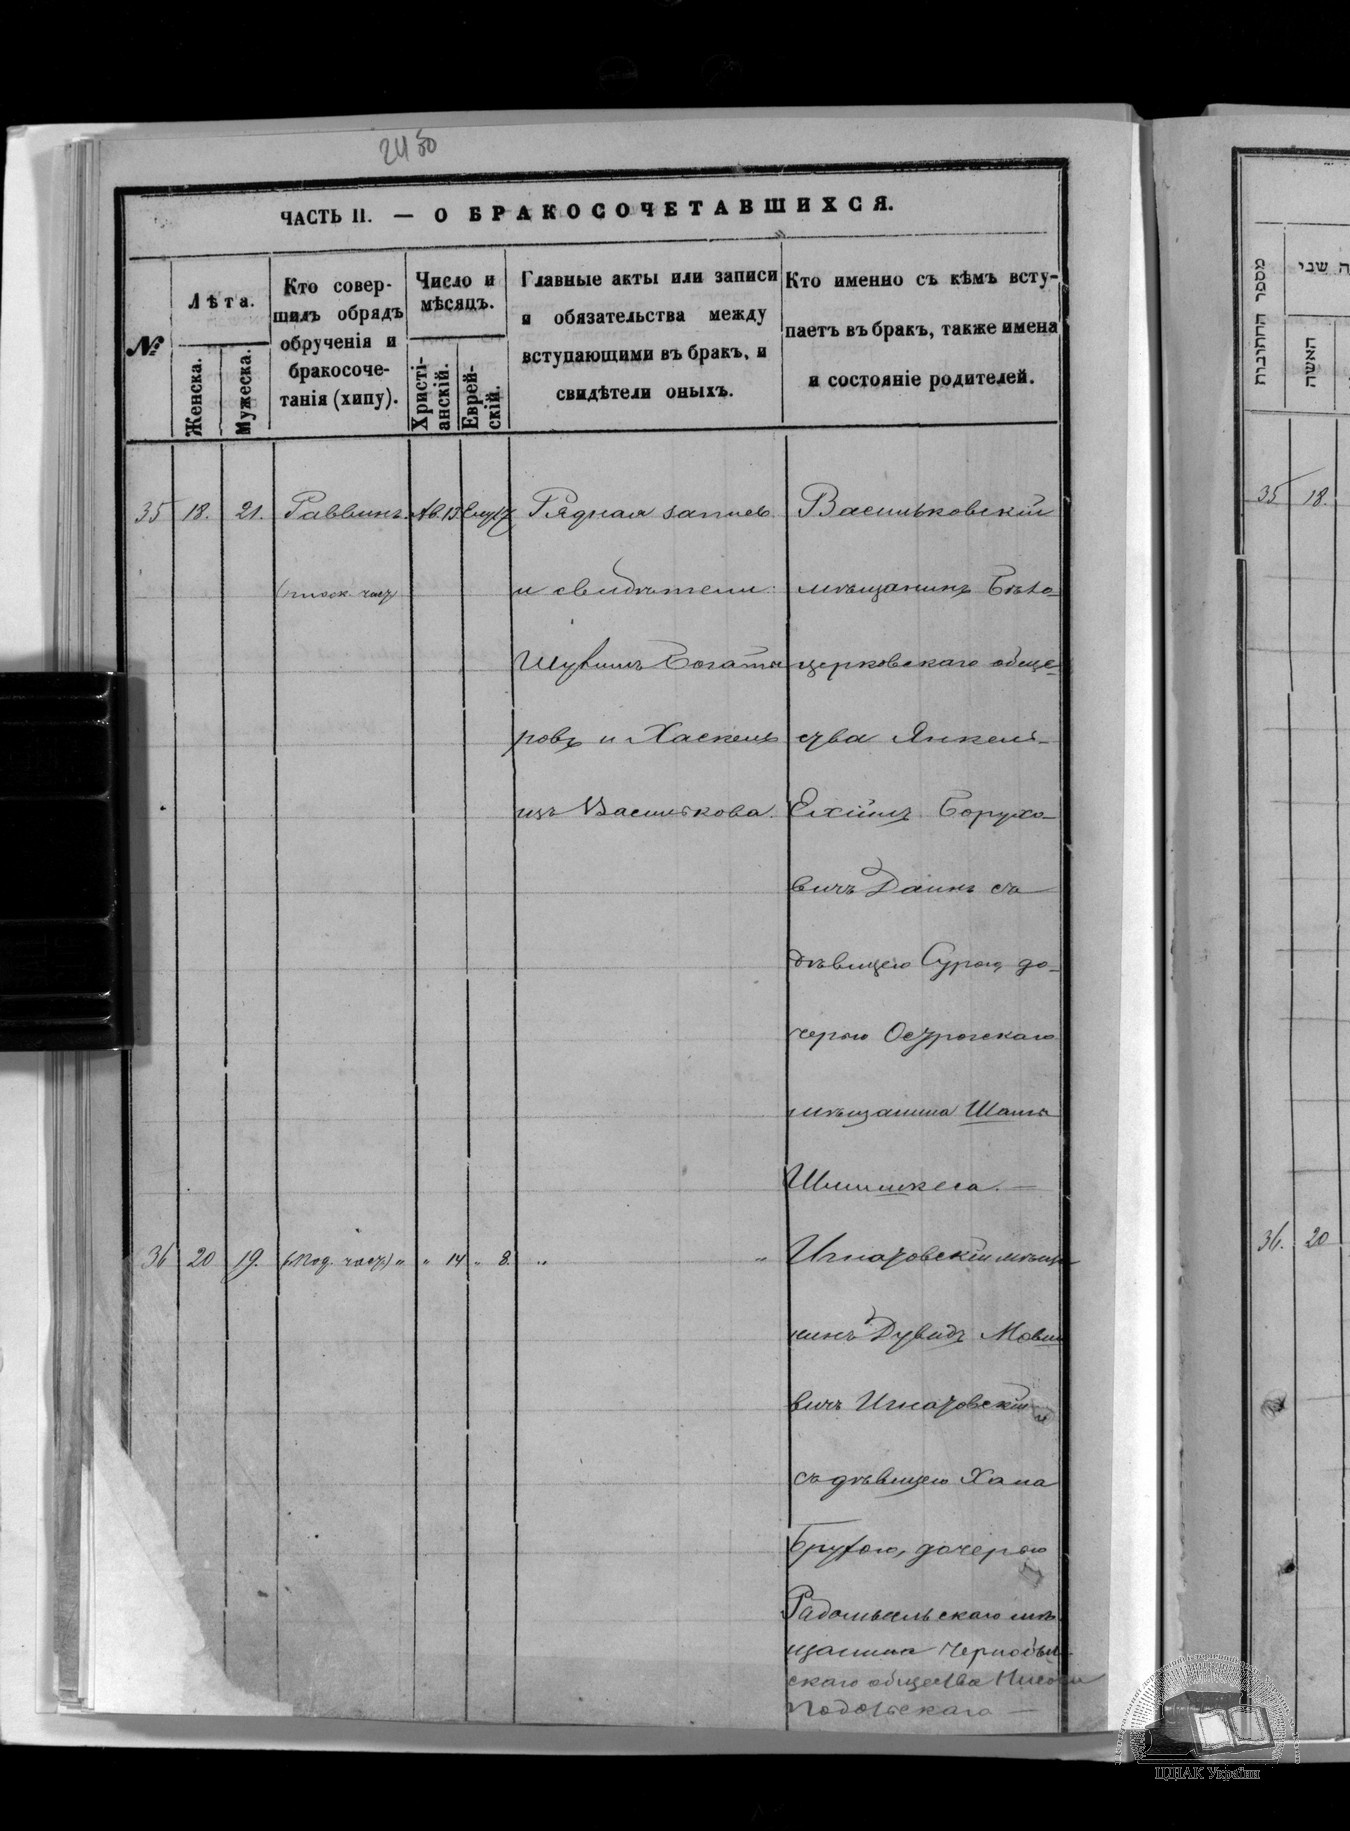 2450
ЧАСТЬ II. — О БРАКОСОЧЕТАВШИХСЯ.
№
Лѣта.
Женска.
Мужеска.
Кто совер-
шилъ обрядъ
обрученія и
бракосоче-
танія (хипу).
Число и
мѣсяцъ.
Христі-
анскій.
Еврей-
скій.
Главные акты или записи
и обязательства между
вступающими въ бракъ, и
свидѣтели оныхъ.
Кто именно съ кѣмъ всту-
паетъ въ бракъ, также имена
и состояніе родителей.
35 18. 21. Раввинъ. Ав. 13
Рядная запись
и свидѣтели:
Шувимъ Богаты
ровъ и Хаскель
изъ Василькова.
Васильковскій
мѣщанинъ Бѣло-
церковскаго обще-
ства Янкель-
Ехіилъ Борухо-
вичъ Даинъ съ
дѣвицею Сурою, до-
черью Острогскаго
мѣщанина
36 20 19. " 14 " 8. " "
Игнатовскій мѣща
нинъ Дувидъ Мов
вичъ Игнатовскій
съ дѣвицею Хана
Брухою, дочерью
Радомысльскаго мѣ
щанина Чернобыл-
скаго общества
Подольскаго —
מספר החתונות
האשה
ה שני
35 18.
36. 20
ЦДІАК України